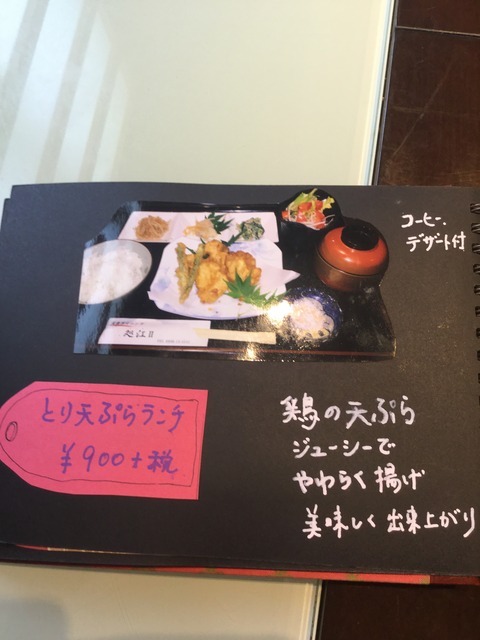 コーヒー、
デザート付
とり天ぷらランチ
¥900+税
鶏の天ぷら
ジューシーで
やわらく揚げ
美味しく出来上がり